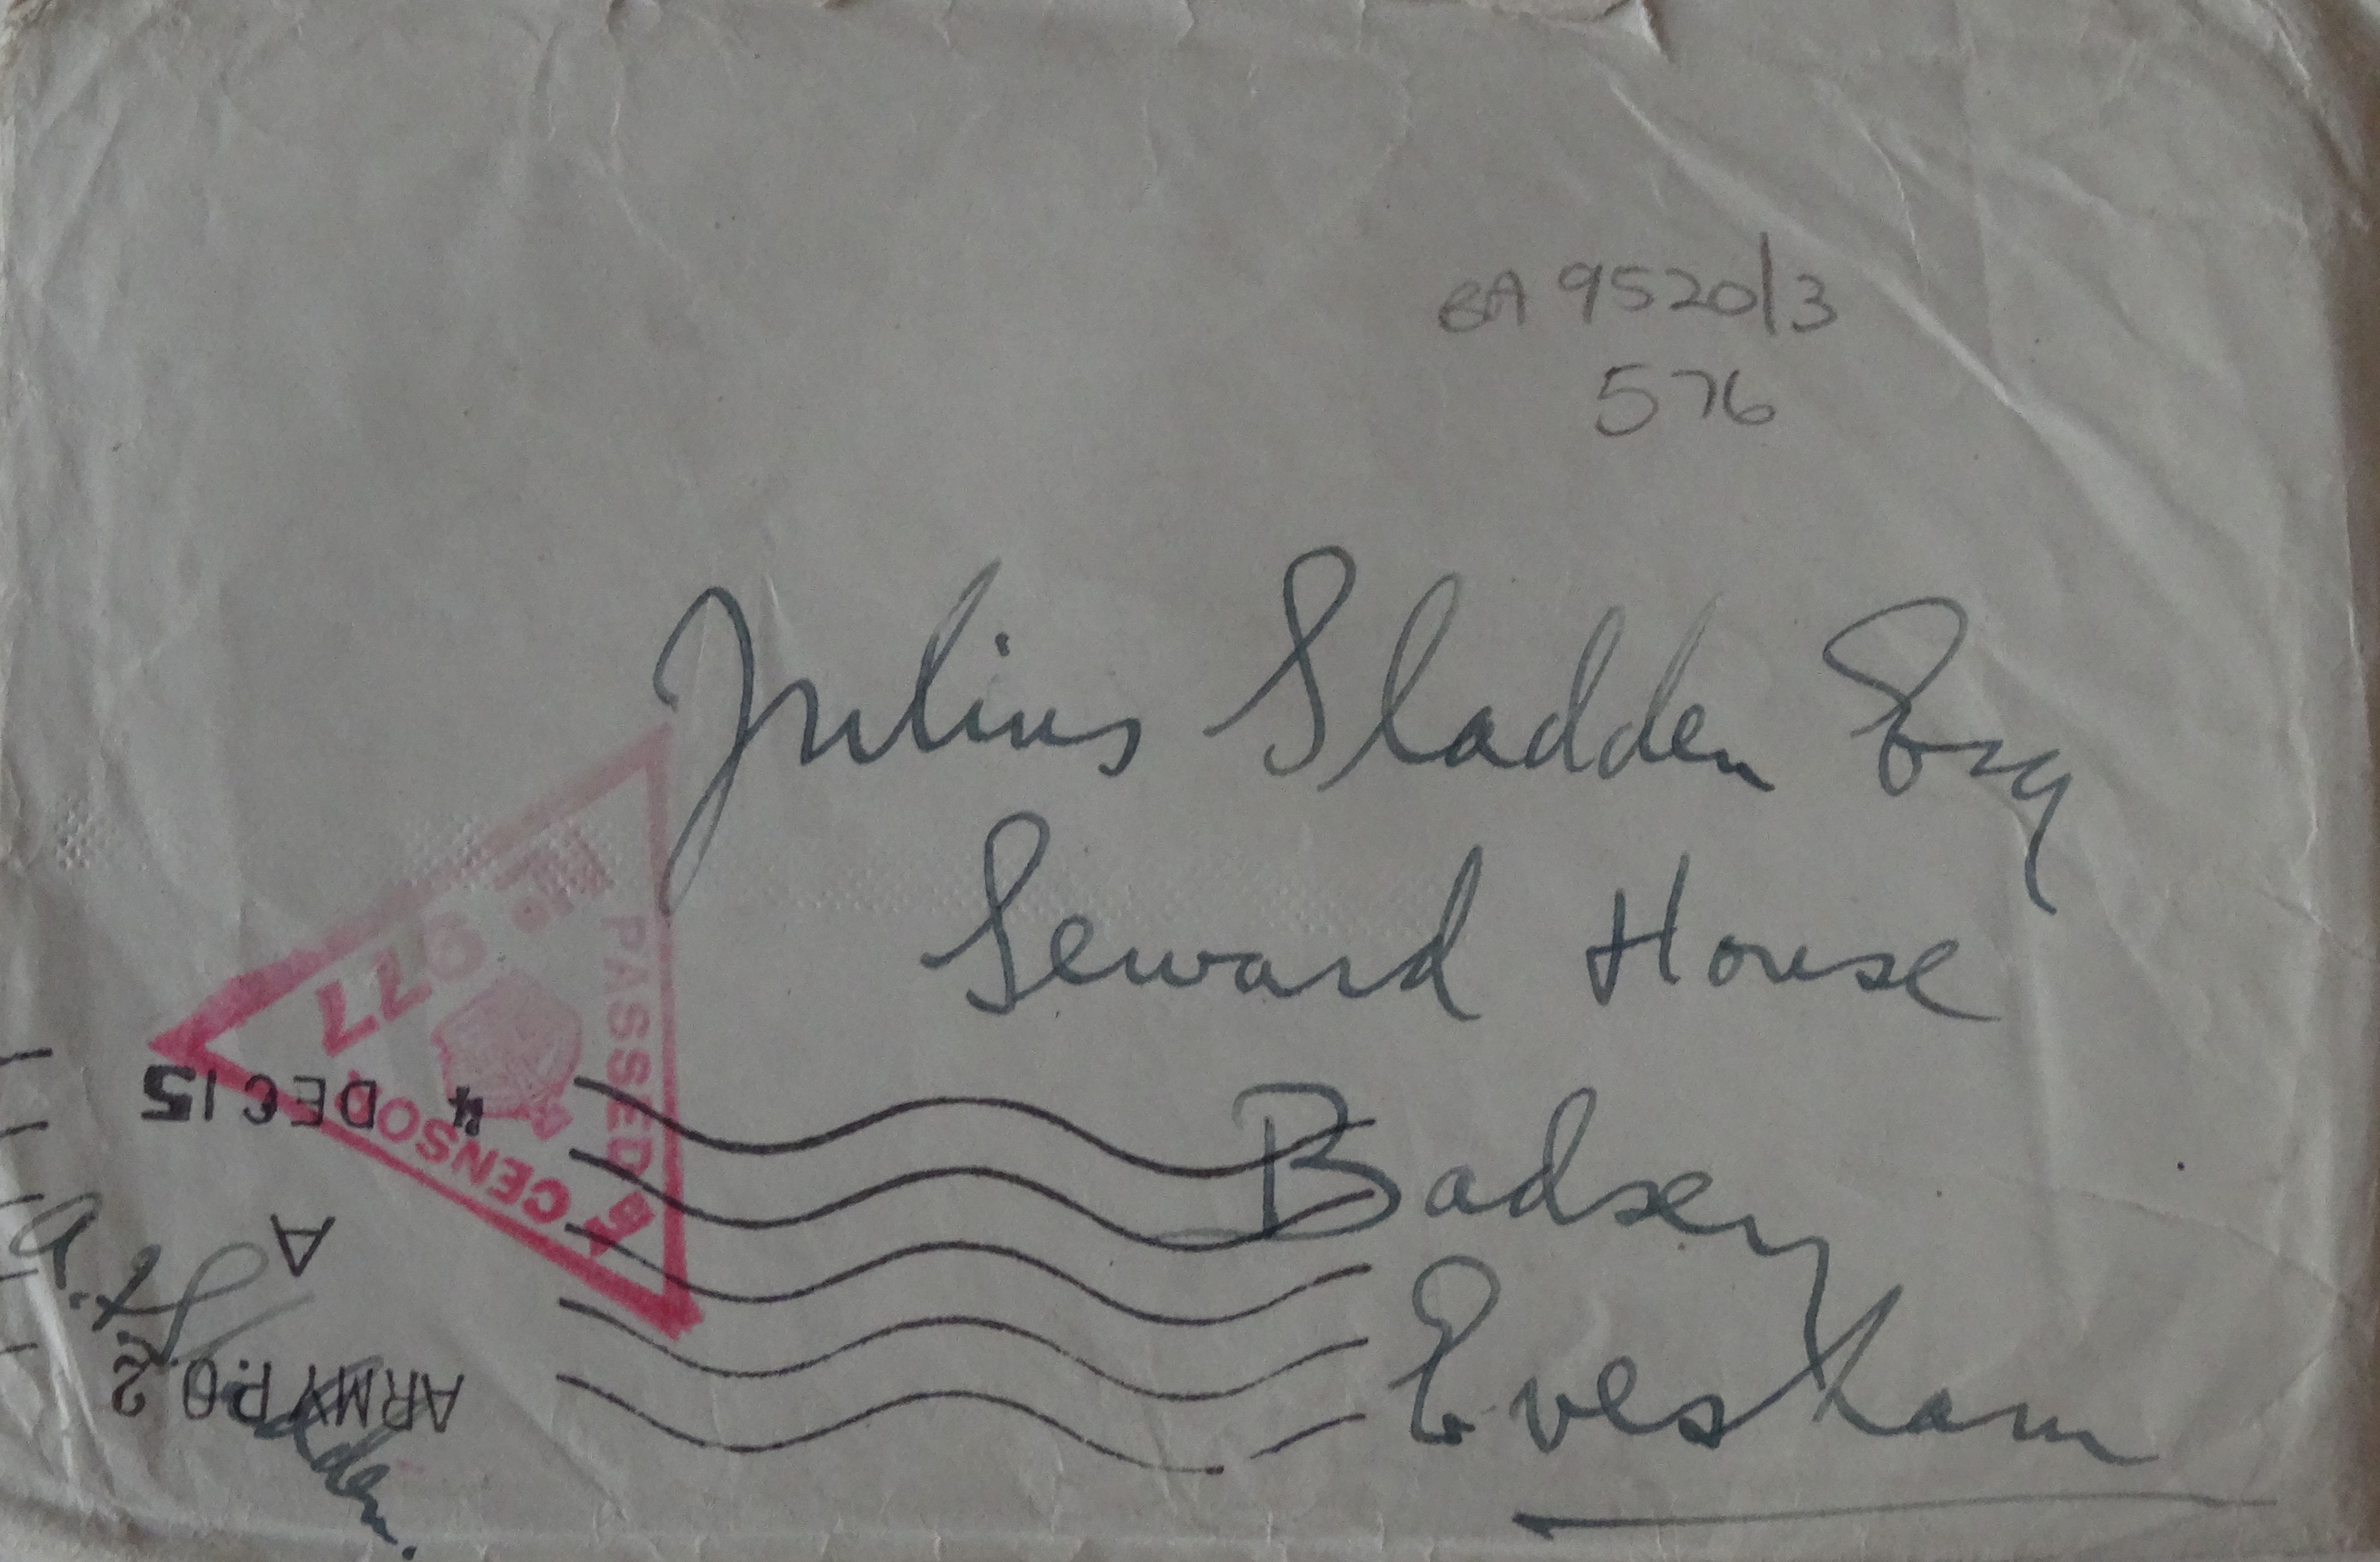 BA 9520/3
576
Julius Sladden Esq
Seward House
Badsey
Evesham
PASSED BY CENSOR
No 977
4 DEC 15
A
ARMY P.O. 2
Sladden.